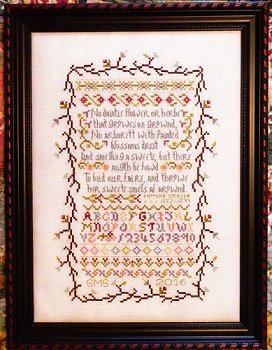 No daintie flower or herbe
that growes on grownd,
No arborett with painted
blossoms drest
And smelling sweete, but there
might be fownd
To bud out faire, and throwe
her sweete smels al arownd.
EDMUND SPENSER
1552-1599
ABCDEFGHIJKL
MNOPQRSTUVW
XYZ1234567890
SMS 2016